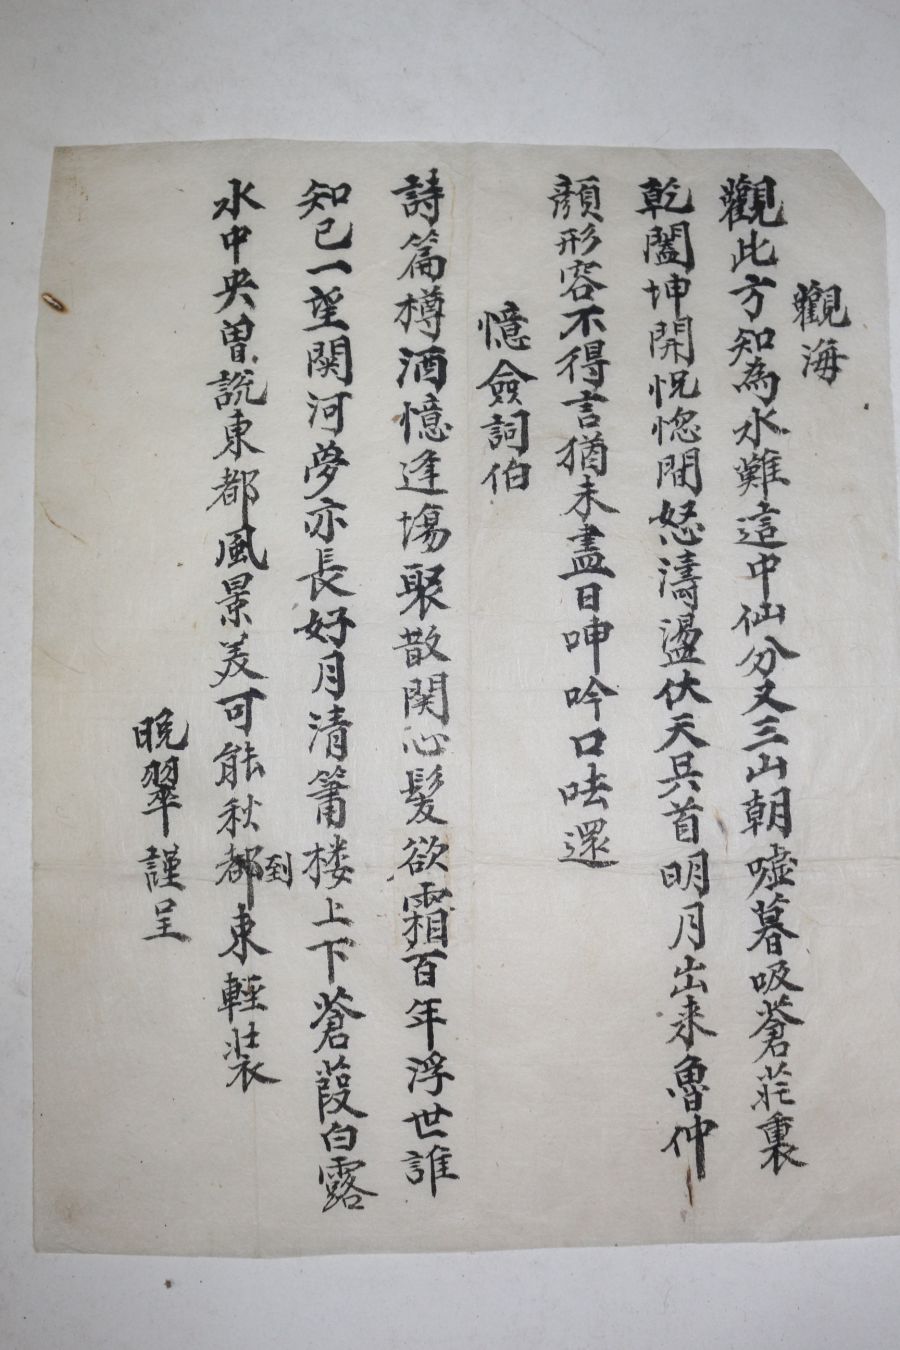 觀海
觀此方知為水難這中仙分又三山朝噓暮吸蒼茫裏
乾闔坤開怳惚間怒濤盪伏天吳首明月出来魯仲
顔形容不得言猶未盡日呻吟口呿還
憶僉詞伯
詩篇樽酒憶逢塲聚散関心髮欲霜百年浮世誰
知己一望関河夢亦長好月清簫楼上下蒼葭白露
水中央曽說東都風景美可能秋都東輕裝
到
晚翠謹呈